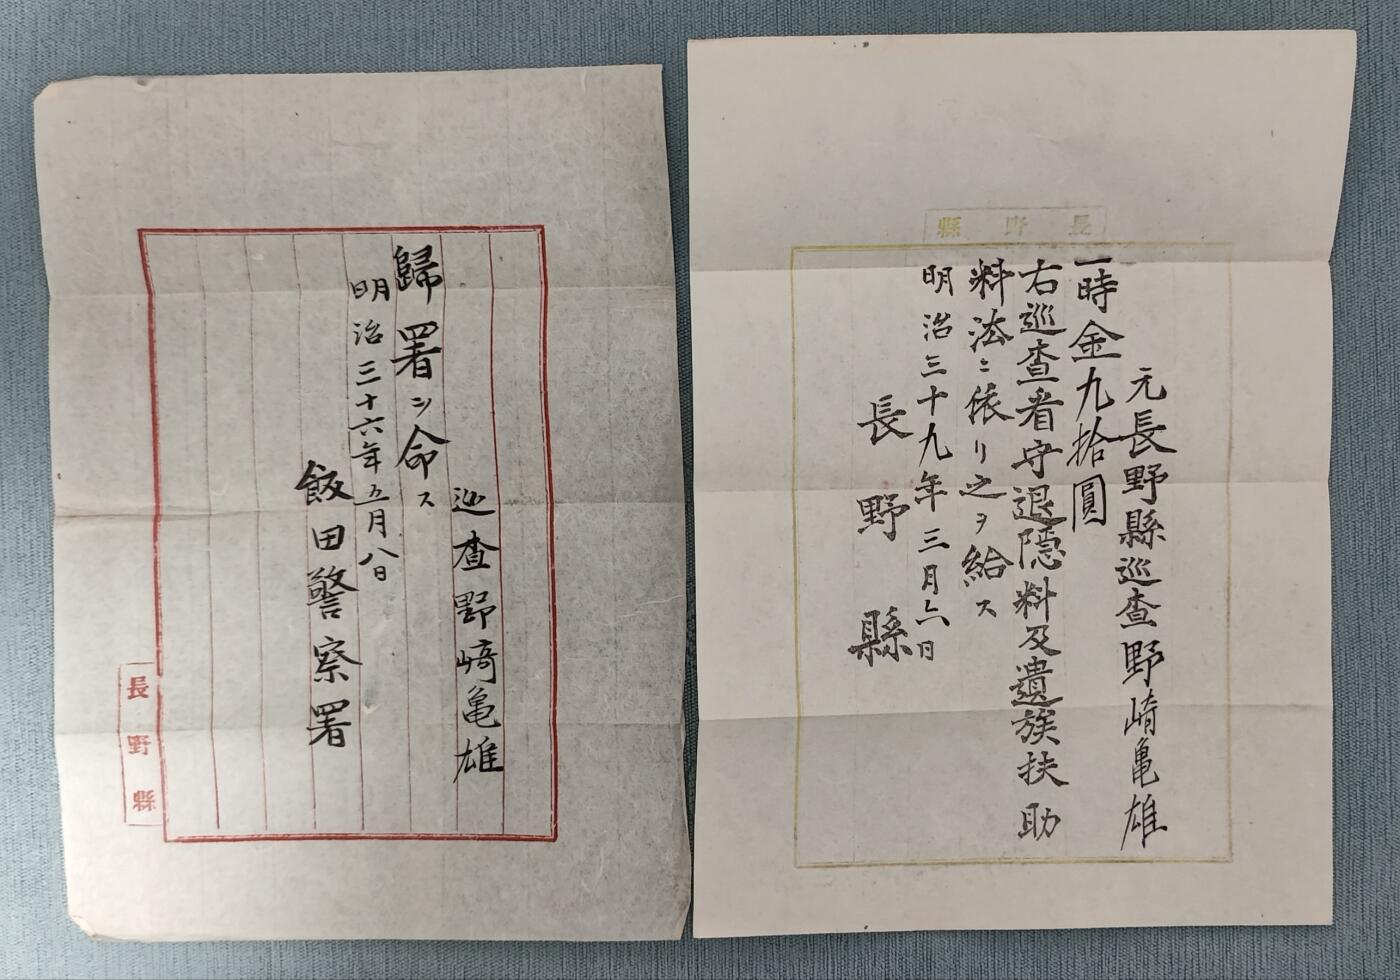 巡査野﨑亀雄
歸署ヲ命ス
明治三十六年五月八日
飯田警察署
長野縣
長野縣
元長野縣巡査野﨑亀雄
一時金九拾圓
右巡査看守退隠料及遺族扶助
料法ニ依リ之ヲ給ス
明治三十九年三月六日
長野縣